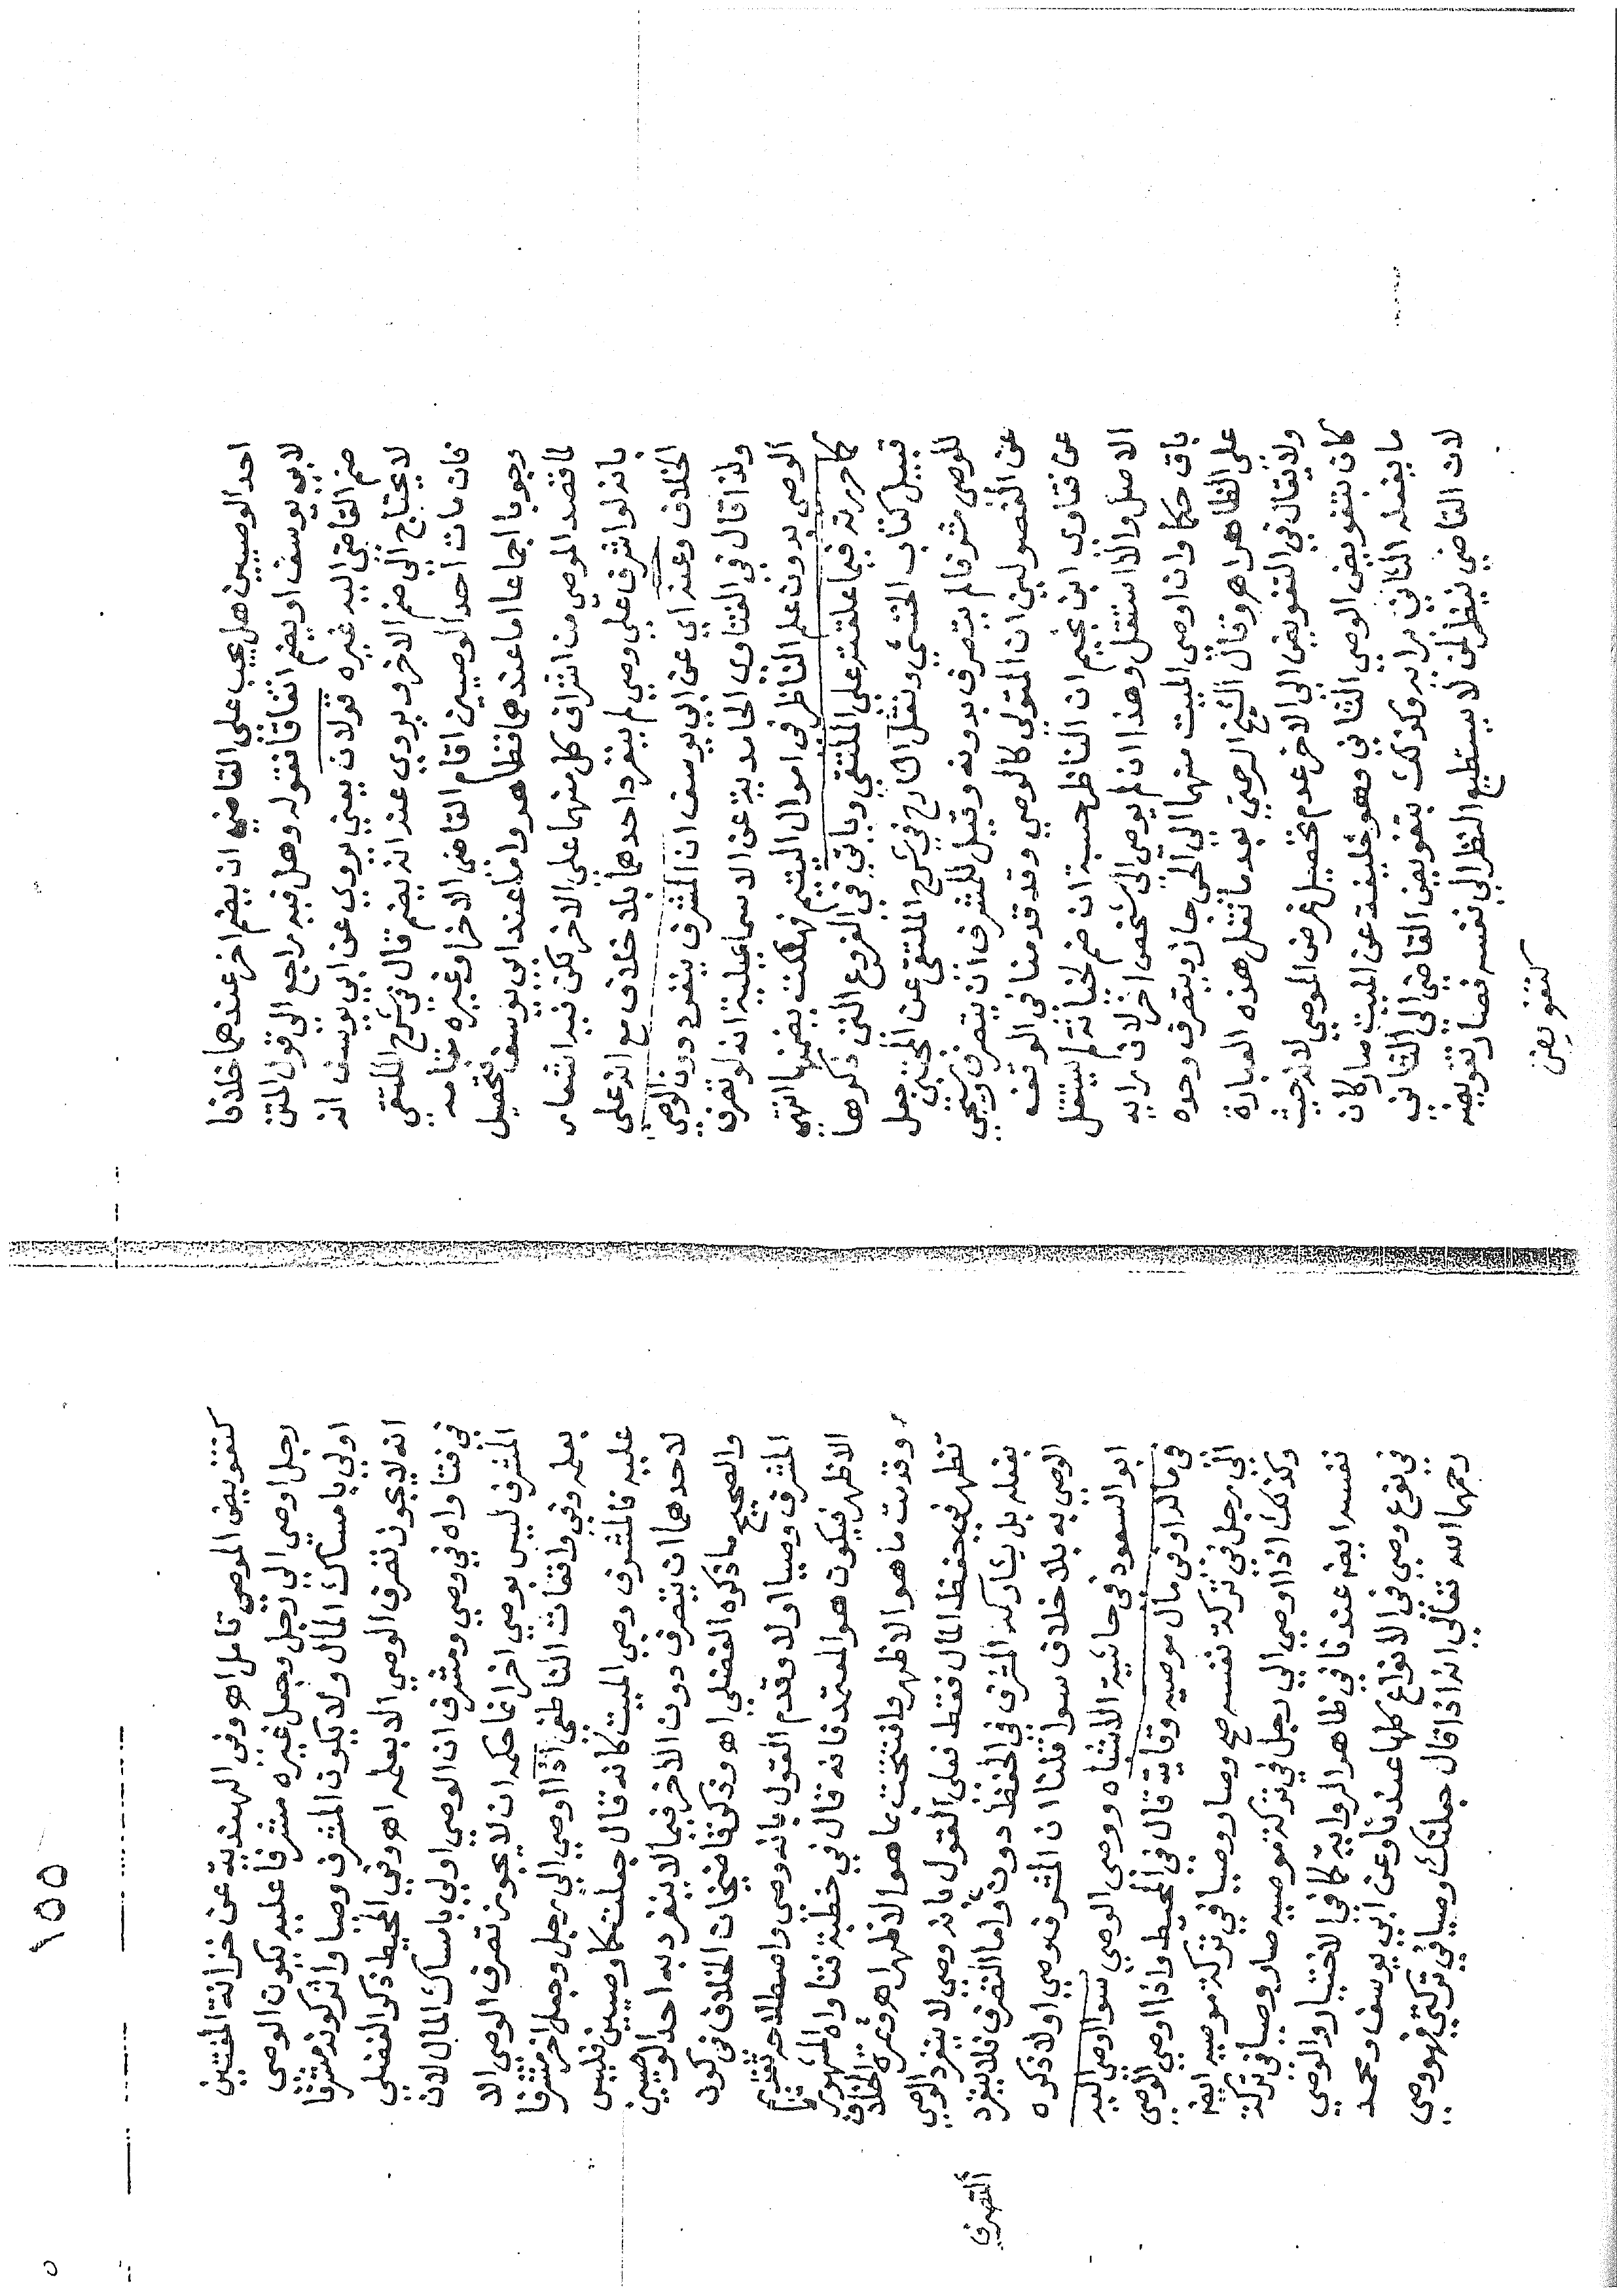 احد الوصيين هل يجب على القاضي ان يضم اخر عندهما خلافا
لابي يوسف او يضم اتفاقا فقوله وهل فيه راجع الى قول المتن
ضم القاضي اليه غيره قولان يعني يروي عن ابي يوسف انه
لا يحتاج الى ضم الاخر ويروي عنه انه يضم قال في شرح الملتقى
فان مات احد الوصيين اقام القاضي الاخر او غيره مقامه
وجوبا اجماعا اما عندهما فظاهر واما عند ابي يوسف فتحصيل
لما قصد الموصي من اشراف كل منهما على الاخر لكن فيه اشعار
بانه لو اشرف على وصي لم ينفرد احدهما بلا خلاف مع انه على
الخلاف وعنه اي عن ابي يوسف ان المشرف ينفرد دون الوصي
ولذا قال في الفتاوى الحامدية عن الاسماعيلية انه لو تصرف
الوصي بدون علم الناظر في اموال اليتيم فهلكت يضمنها انتهى
كما حررته فيما علقته على الملتقى وياتي في الفروع التي ذكرها
قبيل كتاب الخنثى ونقل الشارح في شرح الملتقى عن المجتبى جعل
للوصي مشرفا لم يتصرف بدونه وقيل للمشرف ان يتصرف ويجي
عن الفصولين ان المتولي كالوصي وقد قدمنا في الوقف
عن فتاوى ابن نجيم ان الناظر حسبة ان ضم لخيانة لم يستقل
الاصل والا استقل وهذا ان لم يوصي الى شخص اخر لان رايه
باق حكما وان اوصى الميت منهما الى الحي جاز ويتصرف وحده
على الظاهر اهـ وقال الشيخ الرحمتي بعد ما نقل هذه العبارة
ولا يقال في التفويض الى الاخر عدم تحصيل غرض الموصي لانه حيث
كان بتفويض الوصي الثاني وهو خليفة عن الميت صار كان
ما يفعله الثاني برايه وكذلك بتفويض القاضي الى الثاني
لان القاضي ينظر لمن لا يستطيع النظر الى نفسه فصار تفويضه
كتفويض
١٥٥
كتفويض الموصي تامل اهـ وفي الهندية عن خزانة المفتين
رجل اوصى الى رجل وجعل غيره مشرفا عليه يكون الوصي
اولى بامساك المال ولا يكون المشرف وصيا واثر كونه مشرفا
انه لا يجوز تصرف الوصي الا بعلمه اهـ وفي المحيط ذكر الفضلي
في فتاواه في وصي ومشرف ان الوصي اولى بامساك المال لان
المشرف ليس بوصي اخر انما حكمه ان لا يجوز تصرف الوصي الا
بعلمه وفي واقعات الناطفي اذا اوصى الى رجل وجعل اخر مشرفا
عليه فالمشرف وصي الميت كانه قال جعلتكما وصيين فليس
لاحدهما ان يتصرف دون الاخر فيما لا ينفرد به احد الوصيين
والصحيح ما ذكره الفضلي اهـ وذكر قاضيخان الخلاف في كون
المشرف وصيا اولا وقدم القول بانه وصي واصطلاحه تقديم
الاظهر فيكون هو المعتمد فانه قال في خطبة فتاواه المشهورة
وقدمت ما هو الاظهر وافتتحت بما هو الاشهر اهـ وثمرة الخلاف
تظهر في حفظ المال فقط فعلى القول بانه وصي لا ينفرد الوصي
بفعله بل يشاركه المشرف في الحفظ دون
التصرف
واما التصرف فلا ينفرد
الوصي به بلا خلاف سوا قلنا ان المشرف وصي اولا ذكره
ابو السعود في حاشية الاشباه ووصى الوصي سوا اوصى اليه
في ماله او في مال موصيه وقاية قال في المحيط واذا اوصى الوصي
الى رجل في تركة نفسه صح وصار وصيا في تركة موصيه ايضا
وكذلك اذا اوصى الى رجل في تركة موصيه صار وصيا في تركة
نفسه ايضا عندنا في ظاهر الرواية كما في الاختيار والوصي
في نوع وصي في الانواع كلها عندنا وعن ابي يوسف ومحمد
رحمهما الله تعالى انه اذا قال جعلتك وصيا في تركتي فهو وصي